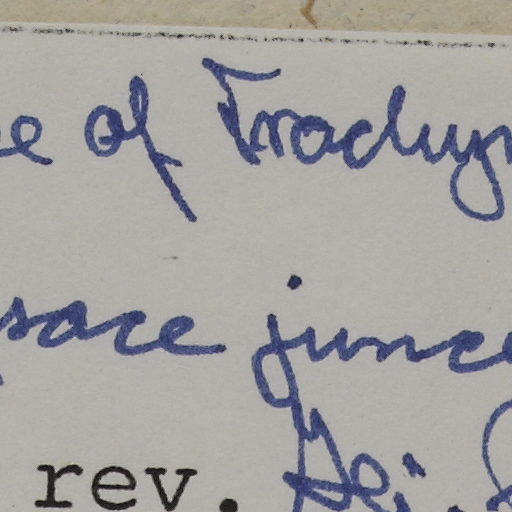 of Trachyn
sace junce
rev.